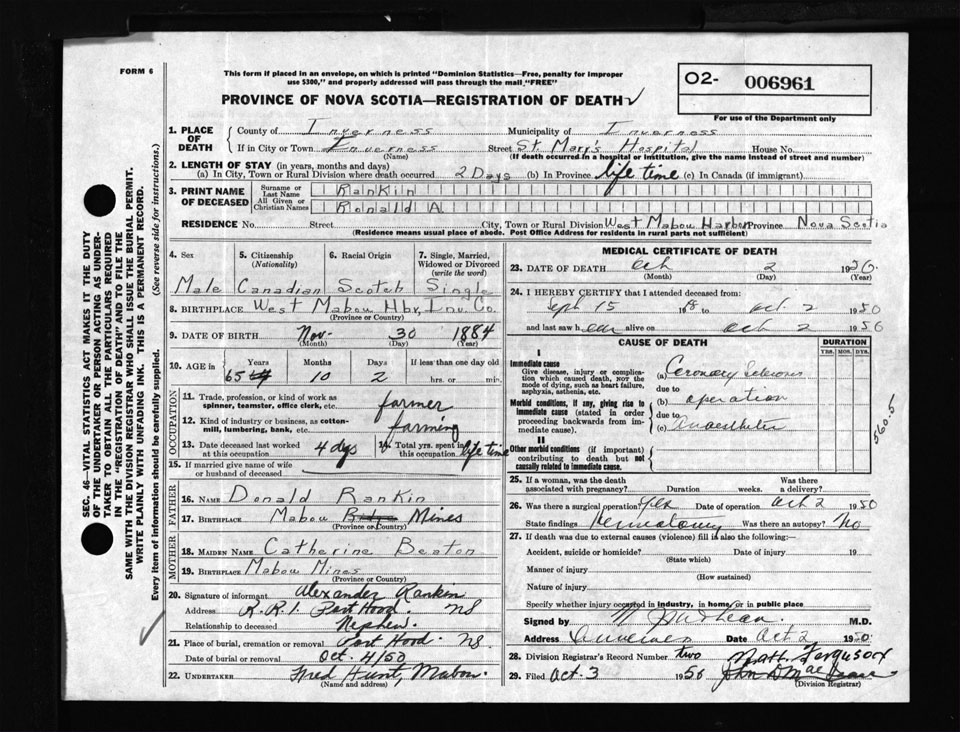 FORM 6
This form if placed in an envelope, on which is printed "Dominion Statistics—Free, penalty for improper
use $300," and properly addressed will pass through the mail "FREE"
PROVINCE OF NOVA SCOTIA—REGISTRATION OF DEATH
O2- 006961
For use of the Department only
SEC. 46—VITAL STATISTICS ACT MAKES IT THE DUTY
OF THE UNDERTAKER OR PERSON ACTING AS UNDER-
TAKER TO OBTAIN ALL THE PARTICULARS REQUIRED
IN THE "REGISTRATION OF DEATH" AND TO FILE THE
SAME WITH THE DIVISION REGISTRAR WHO SHALL ISSUE THE BURIAL PERMIT.
WRITE PLAINLY WITH UNFADING INK. THIS IS A PERMANENT RECORD.
Every item of information should be carefully supplied. (See reverse side for instructions.)
1. PLACE OF DEATH County of Inverness Municipality of Inverness
If in City or Town Inverness Street St. Mary's Hospital House No.
(Name) (If death occurred in a hospital or institution, give the name instead of street and number)
2. LENGTH OF STAY (in years, months and days)
(a) In City, Town or Rural Division where death occurred 2 Days (b) In Province life time (c) In Canada (if immigrant)
3. PRINT NAME OF DECEASED Surname or Last Name Rankin
All Given or Christian Names Ronald A.
RESIDENCE No. Street City, Town or Rural Division West Mabou Harbour Province Nova Scotia
(Residence means usual place of abode. Post Office Address for residents in rural parts not sufficient)
4. Sex 5. Citizenship (Nationality) 6. Racial Origin 7. Single, Married, Widowed or Divorced (write the word)
Male Canadian Scotch Single
8. BIRTHPLACE West Mabou Hbr, Inv. Co.
(Province or Country)
9. DATE OF BIRTH Nov- 30 1884
(Month) (Day) (Year)
10. AGE in Years Months Days If less than one day old
65 10 2 hrs. or min.
OCCUPATION
11. Trade, profession, or kind of work as spinner, teamster, office clerk, etc. farmer
12. Kind of industry or business, as cotton-mill, lumbering, bank, etc. farming
13. Date deceased last worked at this occupation 4 dys 14. Total yrs. spent in this occupation life time
15. If married give name of wife or husband of deceased
FATHER
16. NAME Donald Rankin
17. BIRTHPLACE Mabou Mines
(Province or Country)
MOTHER
18. MAIDEN NAME Catherine Beaton
19. BIRTHPLACE Mabou Mines
(Province or Country)
20. Signature of informant Alexander Rankin
Address R.R.1. Port Hood. NS
Relationship to deceased Nephew.
21. Place of burial, cremation or removal Port Hood. NS.
Date of burial or removal Oct. 4/50
22. UNDERTAKER Fred Hunt, Mabou.
(Name and address)
MEDICAL CERTIFICATE OF DEATH
23. DATE OF DEATH Oct 2 1950.
(Month) (Day)
24. I HEREBY CERTIFY that I attended deceased from:
Sept 15 to Oct 2 1950
and last saw h alive on Oct 2 1950
CAUSE OF DEATH DURATION
YRS. MOS. DYS.
I
Immediate cause
Give disease, injury or complication which caused death, NOT the mode of dying, such as heart failure, asphyxia, asthenia, etc.
(a) Coronary Sclerosis
due to
Morbid conditions, if any, giving rise to immediate cause (stated in order proceeding backwards from immediate cause).
(b) operation
due to
(c) Anaesthetic
560.5
II
Other morbid conditions (if important) contributing to death but not causally related to immediate cause.
25. If a woman, was the death associated with pregnancy? Duration weeks. Was there a delivery?
26. Was there a surgical operation? Yes Date of operation Oct 2 1950
State findings Herniotomy Was there an autopsy? No
27. If death was due to external causes (violence) fill in also the following:—
Accident, suicide or homicide? Date of injury 19
(State which)
Manner of injury
(How sustained)
Nature of injury
Specify whether injury occurred in industry, in home, or in public place
Signed by M.D.
Address Inverness Date Oct 2 1950.
28. Division Registrar's Record Number two
29. Filed Oct. 3 1950
(Division Registrar)